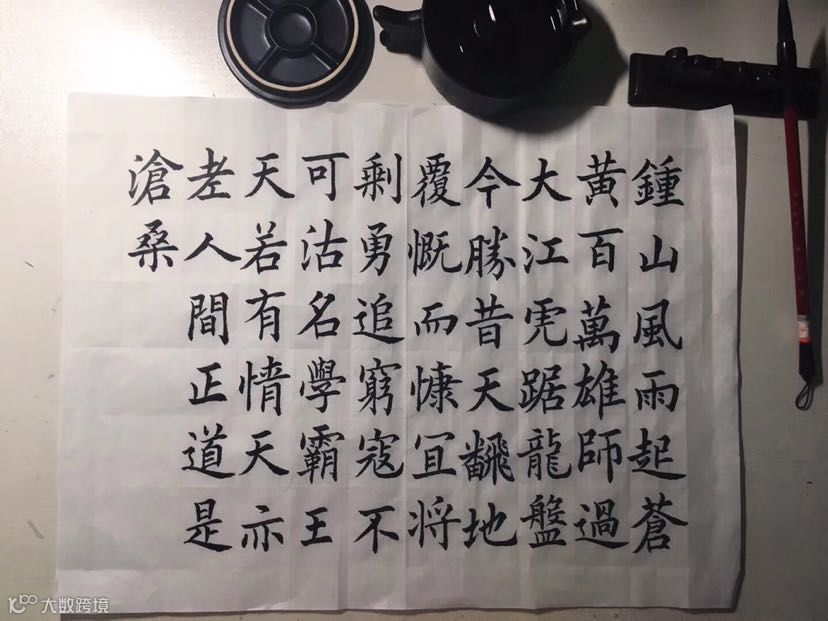 鍾山風雨起蒼
黃百萬雄師過
大江虎踞龍盤
今勝昔天翻地
覆慨而慷宜將
剩勇追窮寇不
可沽名學霸王
天若有情天亦
老人間正道是
滄桑
大数跨境